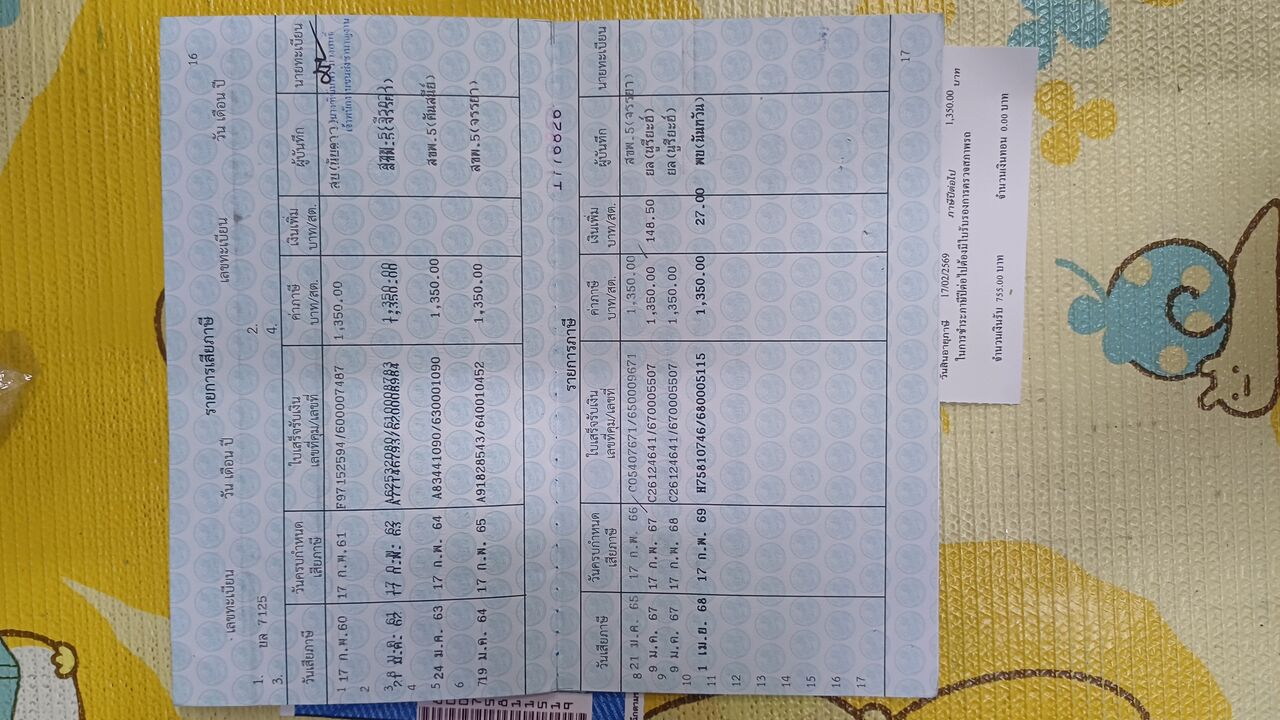 16
รายการเสียภาษี
เลขทะเบียน วัน เดือน ปี เลขทะเบียน วัน เดือน ปี
1. บล 7125 2.
3. 4.
วันเสียภาษี วันครบกำหนดเสียภาษี ใบเสร็จรับเงิน เลขที่คุม/เลขที่ ค่าภาษี บาท/สต. เงินเพิ่ม บาท/สต. ผู้บันทึก นายทะเบียน
1 17 ก.พ.60 17 ก.พ.61 F97152594/600007487 1,350.00
2
3
4
5 24 ม.ค. 63 17 ก.พ. 64 A83441090/630001090 1,350.00 สขพ.5(ศันสนีย์)
6
7 19 ม.ค. 64 17 ก.พ. 65 A91828543/640010452 1,350.00 สขพ.5(จรรยา)
1110620
รายการภาษี
วันเสียภาษี วันครบกำหนดเสียภาษี ใบเสร็จรับเงิน เลขที่คุม/เลขที่ ค่าภาษี บาท/สต. เงินเพิ่ม บาท/สต. ผู้บันทึก นายทะเบียน
8 21 ม.ค. 65 17 ก.พ. 66 C05407671/650009671 1,350.00 สขพ.5(จรรยา)
9 9 ม.ค. 67 17 ก.พ. 67 C26124641/670005507 1,350.00 148.50 ยล(นูรียะฮ์)
10 9 ม.ค. 67 17 ก.พ. 68 C26124641/670005507 1,350.00 ยล(นูรียะฮ์)
11 1 เม.ย. 68 17 ก.พ. 69 H75810746/680005115 1,350.00 27.00 พบ(นันทวัน)
12
13
14
15
16
17
17
วันสิ้นอายุภาษี 17/02/2569 ภาษีปีต่อไป 1,350.00 บาท
ในการชำระภาษีปีต่อไปต้องมีใบรับรองการตรวจสภาพรถ
จำนวนเงินรับ 755.00 บาท จำนวนเงินทอน 0.00 บาท